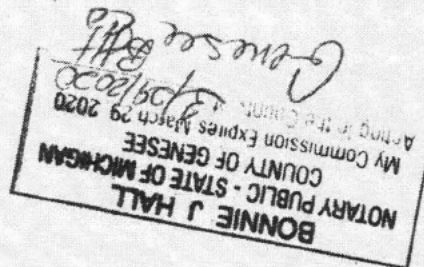 BONNIE J HALL
NOTARY PUBLIC - STATE OF MICHIGAN
COUNTY OF GENESEE
My Commission Expires March 29 2020
Acting in the County
3/29/2020
Genesee